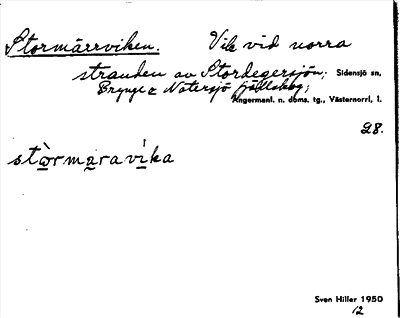 Stormärrviken. Vik vid norra
stranden av Stordegersjön; Sidensjö sn,
Brynge & Nätersjö fjällskog;
Ångermanl. n. doms. tg., Västernorrl. l.
28.
stòrmạravíka
Sven Hiller 1950
12